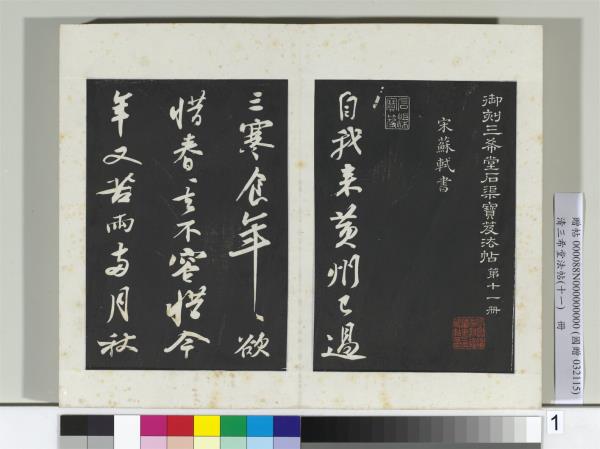 御刻三希堂石渠寶笈法帖第十一冊
宋蘇軾書
自我来黃州已過
三寒食年〻欲
惜春〻去不容惜今
年又苦雨兩月秋
贈帖 000088N000000000 (國贈 032115)
清三希堂法帖(十一) 冊
1